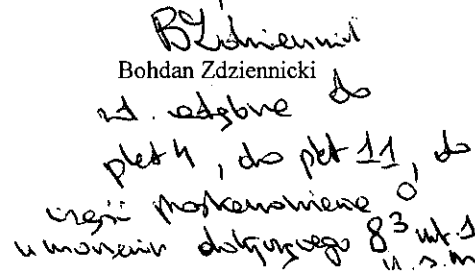 BZdziennicki
Bohdan Zdziennicki
zd. odrębne do
pkt 4, do pkt 11, do
części postanowienia o
umorzeniu dotyczącego 8³ ust. 1
u.s.m